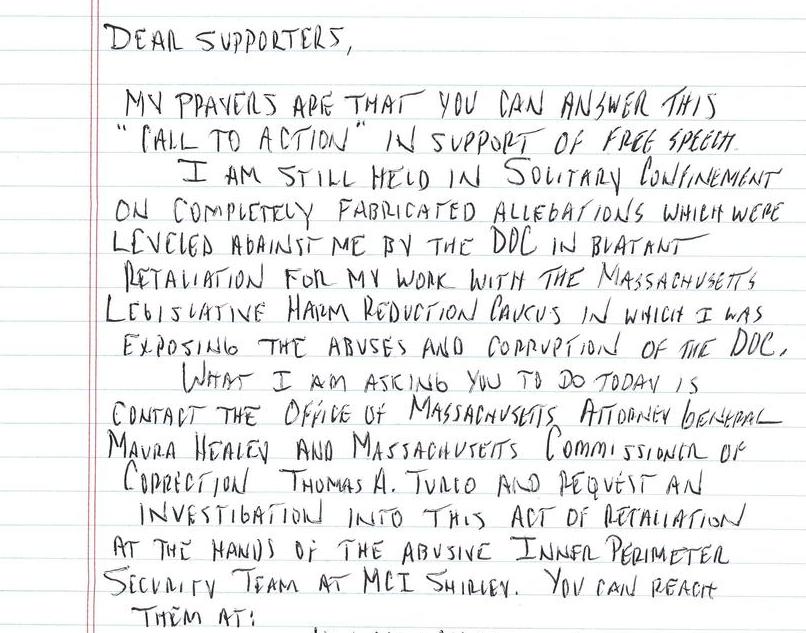 DEAR SUPPORTERS,
MY PRAYERS ARE THAT YOU CAN ANSWER THIS
"CALL TO ACTION" IN SUPPORT OF FREE SPEECH.
I AM STILL HELD IN SOLITARY CONFINEMENT
ON COMPLETELY FABRICATED ALLEGATIONS WHICH WERE
LEVELED AGAINST ME BY THE DOC IN BLATANT
RETALIATION FOR MY WORK WITH THE MASSACHUSETTS
LEGISLATIVE HARM REDUCTION CAUCUS IN WHICH I WAS
EXPOSING THE ABUSES AND CORRUPTION OF THE DOC.
WHAT I AM ASKING YOU TO DO TODAY IS
CONTACT THE OFFICE OF MASSACHUSETTS ATTORNEY GENERAL
MAURA HEALEY AND MASSACHUSETTS COMMISSIONER OF
CORRECTION THOMAS A. TURCO AND REQUEST AN
INVESTIGATION INTO THIS ACT OF RETALIATION
AT THE HANDS OF THE ABUSIVE INNER PERIMETER
SECURITY TEAM AT MCI SHIRLEY. YOU CAN REACH
THEM AT: